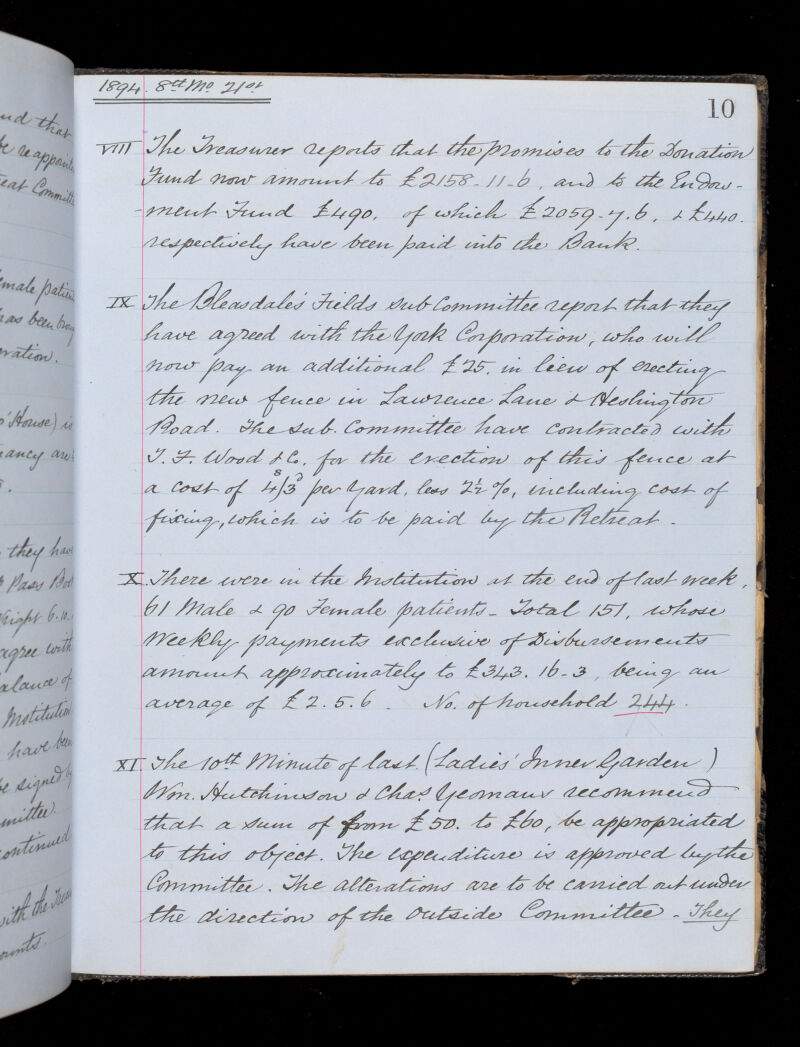 1894. 8th Mo 21st
10
VIII The Treasurer reports that the promises to the Donation
Fund now amount to £2158-11-6, and to the Endow-
-ment Fund £490. of which £2059-7.6. & £440.
respectively have been paid into the Bank.
IX The Bleasdale's Fields sub Committee report that they
have agreed with the York Corporation, who will
now pay an additional £25. in lieu of erecting
the new fence in Lawrence Lane & Heslington
Road. The sub. Committee have contracted with
T. F. Wood & Co. for the erection of this fence at
a cost of 4s/3d per Yard, less 2½ %, including cost of
fixing, which is to be paid by the Retreat.
X There were in the Institution at the end of last week,
61 Male & 90 Female patients - Total 151, whose
Weekly payments exclusive of Disbursements
amount approximately to £343.16-3, being an
average of £2.5.6. No. of household 244.
XI. The 10th Minute of last. (Ladies' Inner Garden)
Wm. Hutchinson & Chas. Yeomans recommend
that a sum of from £50. to £60, be appropriated
to this object. The expenditure is approved by the
Committee. The alterations are to be carried out under
the direction of the Outside Committee - They
and that
be reappoint
eat Committe
emale patien
has been
eration.
House) is
ancy are
they have
Pass Boo
agree with
alance of
Institution
have been
be signed by
mittee.
continued
with the Treas
ounts.